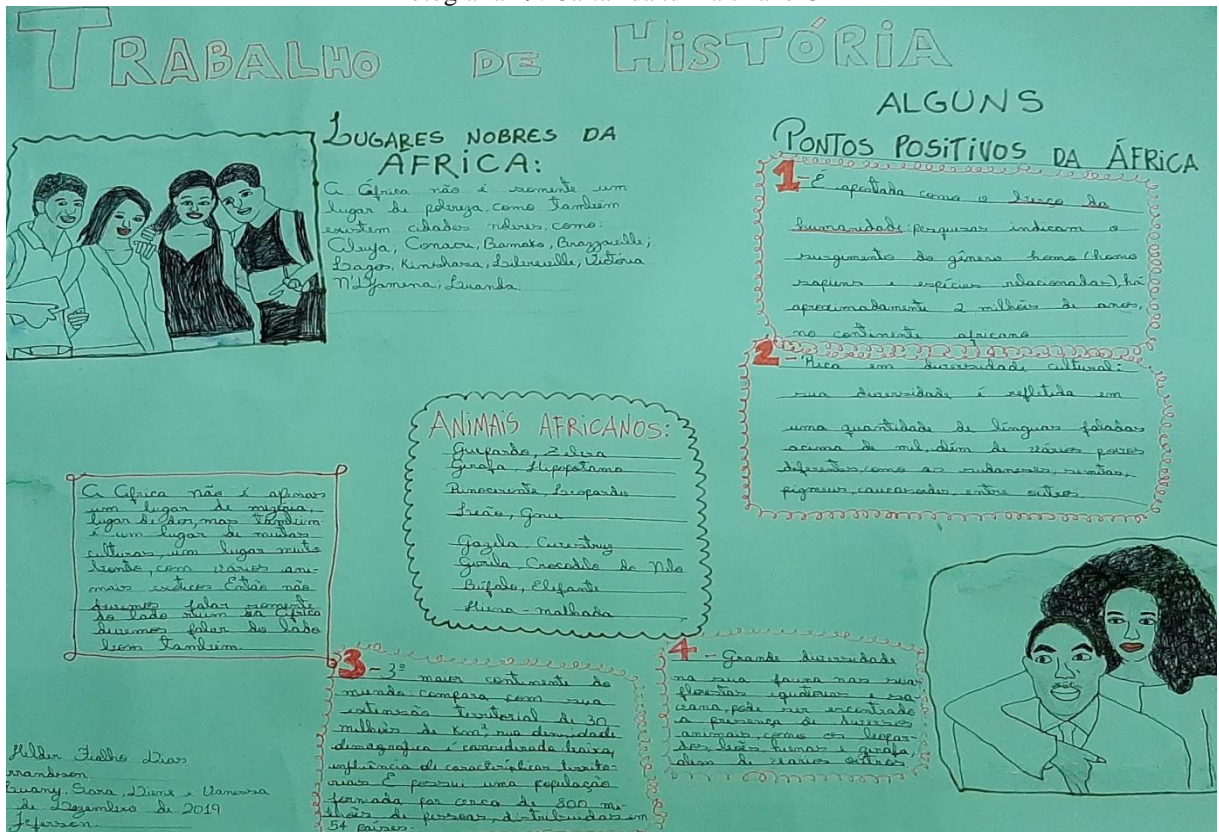 TRABALHO DE HISTÓRIA
LUGARES NOBRES DA
ÁFRICA:
A África não é somente um
lugar de pobreza, como também
existem cidades nobres, como:
Abuja, Conacri, Bamako, Brazzaville,
Lagos, Kinshasa, Libreville, Victória
N'Djamena, Luanda.
ALGUNS
PONTOS POSITIVOS DA ÁFRICA
1 - É apontada como o berço da
humanidade: pesquisas indicam o
surgimento do gênero homo (homo
sapiens e espécies relacionadas), há
aproximadamente 2 milhões de anos,
no continente africano
2 - Rica em diversidade cultural:
sua diversidade é refletida em
uma quantidade de línguas faladas
acima de mil, além de vários povos
diferentes, como os sudaneses, semitas,
pigmeus, caucasoides, entre outros.
ANIMAIS AFRICANOS:
Guepardo, Zebra
Girafa, Hipopótamo
Rinoceronte, Leopardo
Leão, Gnu
Gazela Avestruz
Gorila Crocodilo do Nilo
Búfalo, Elefante
Hiena-malhada
A África não é apenas
um lugar de
lugar de dor, mas também
é um lugar de muitas
culturas, um lugar muito
bonito, com vários ani-
mais exóticos Então não
devemos falar somente
do lado ruim da África
devemos falar do lado
bom também.
3 - 3º maior continente do
mundo: compara com sua
extensão territorial de 30
milhões de Km², sua densidade
demográfica é considerada baixa,
influência de características territo-
riais E possui uma população
formada por cerca de 800 mi-
lhões de pessoas, distribuídas em
54 países.
4 - Grande diversidade
na sua fauna nas sua
florestas equatorias e sa-
vana, pode ser encontrado
a presença de diversos
animais, como os leopar-
dos, leões, hienas e girafa,
além de vários outros.
Helder Fialho Dias
Sara, Diene e Vanessa
de Dezembro de 2019
Jeferson.